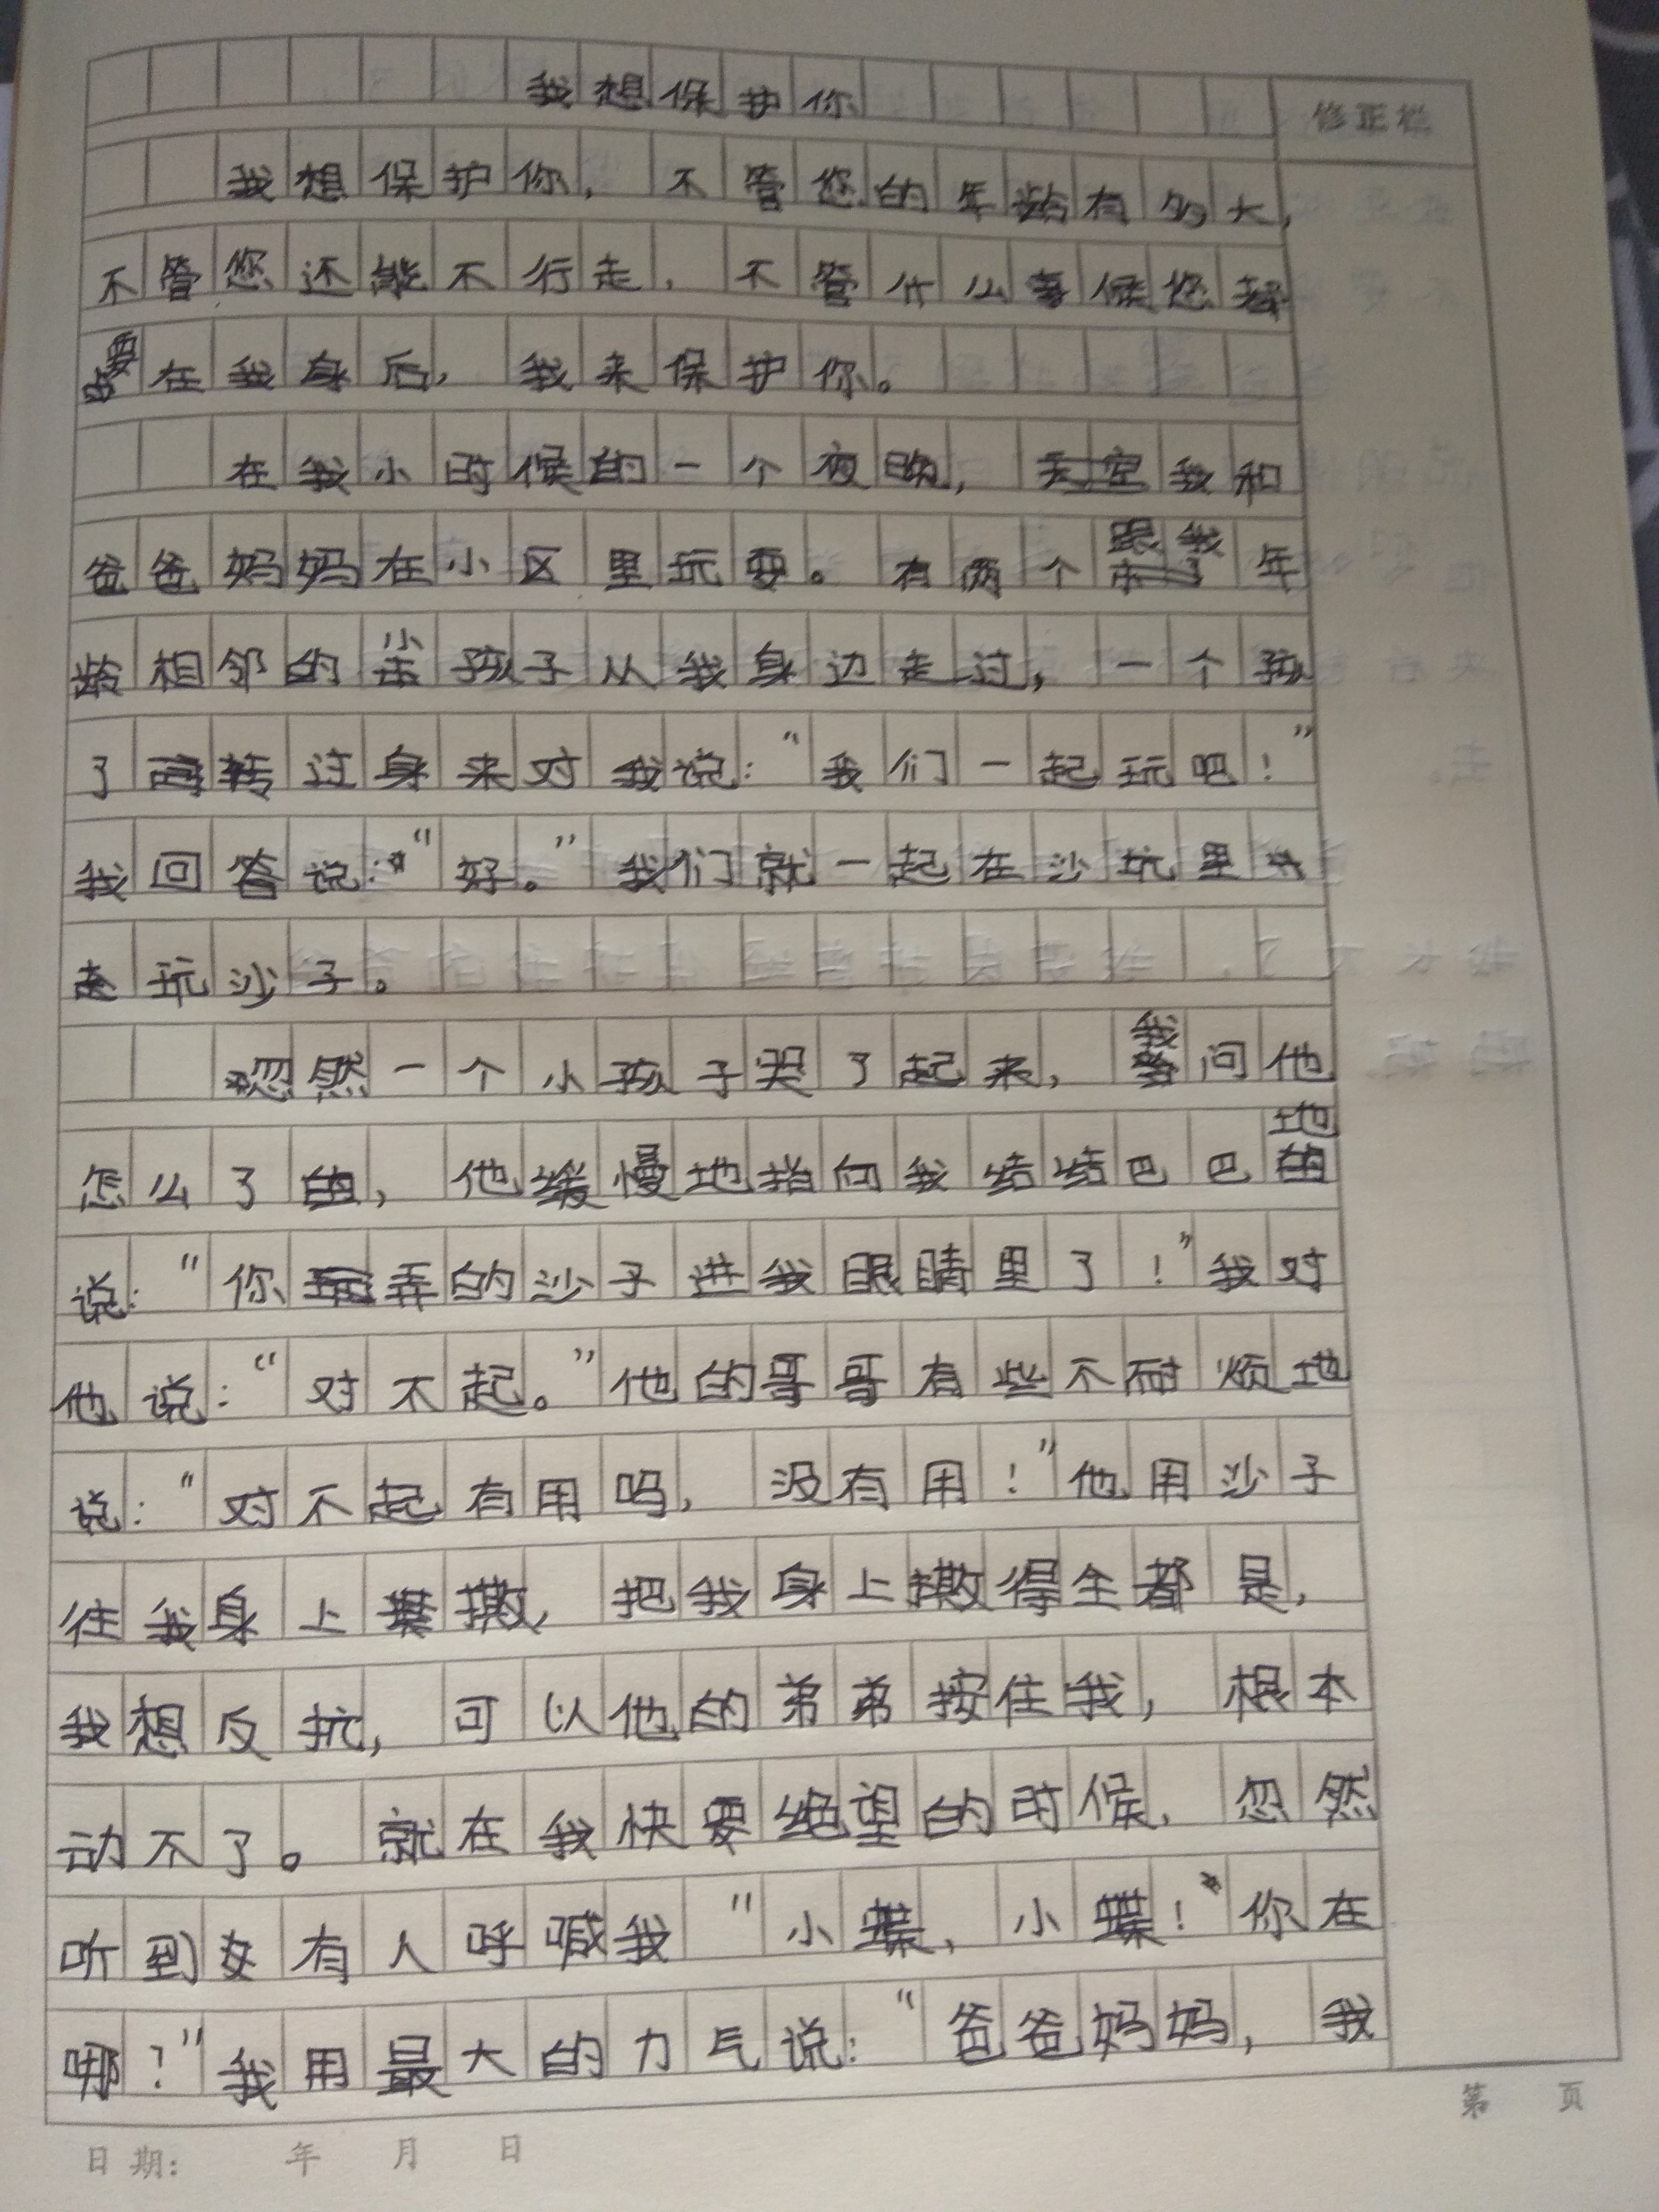 我想保护你
修正栏
我想保护你，不管您的年龄有多大，
不管您还能不行走，不管什么事候您都
要在我身后，我来保护你。
在我小时候的一个夜晚，我和
爸爸妈妈在小区里玩耍。有两个跟我年
龄相邻的小孩子从我身边走过，一个孩
了转过身来对我说：“我们一起玩吧！”
我回答说：“好。”我们就一起在沙坑里
玩沙子。
忽然一个小孩子哭了起来，我问他
怎么了的，他缓慢地指向我结结巴巴地
说：“你弄的沙子进我眼睛里了！”我对
他说：“对不起。”他的哥哥有些不耐烦地
说：“对不起有用吗，没有用！”他用沙子
往我身上撒，把我身上撒得全都是，
我想反抗，可以他的弟弟按住我，根本
动不了。就在我快要绝望的时候，忽然
听到有人呼喊我“小蝶，小蝶！你在
哪？”我用最大的力气说：“爸爸妈妈，我
第 页
日期： 年 月 日